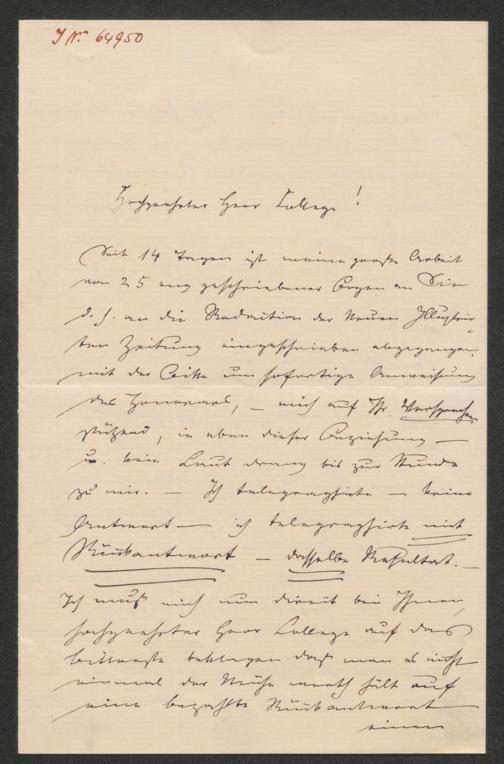 I. N. 64950
Hochgeehrter Herr College!
Seit 14 Tagen ist meine große Arbeit
von 25 eng geschriebener Bogen an Sie
d. h. an die Redaction der Neuen Illustrir=
ten Zeitung eingeschrieben abgegangen,
mit der Bitte um sofortige Anweisung
des Honorars, – mich auf Ihr Versprechen
stützend, in eben dieser Beziehung –
u. kein Laut drang bis zur Stunde
zu mir. – Ich telegraphirte – keine
Antwort – ich telegraphirte mit
Rückantwort – dasselbe Resultat. –
Ich muß mich nun direct bei Ihnen,
hochgeehrter Herr College auf das
bitterste beklagen daß man es nicht
einmal der Mühe werth hält auf
eine bezahlte Rückantwort
einen